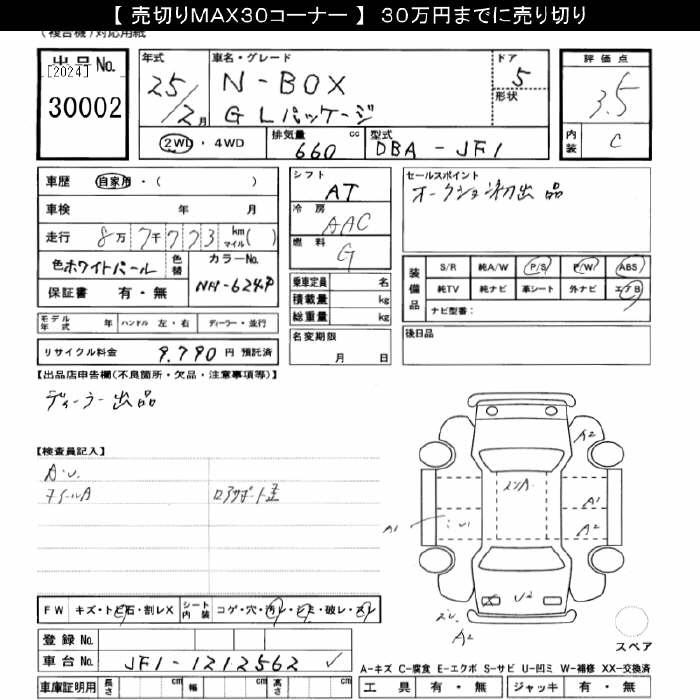 【 売切りMAX30コーナー 】 30万円までに売り切り
(複合機)対応用紙
出品 No.
[2024]
30002
年式
25/2月
車名・グレード
N-BOX
G Lパッケージ
ドア
5
形状
評価点
3.5
内装
C
2WD ・ 4WD
排気量
660
cc
型式
DBA - JF1
車歴 自家用・( )
車検 年 月
走行 8万7千773 km マイル( )
色 ホワイトパール
色替
カラーNo.
NH-624P
保証書 有・無
シフト
AT
冷房
AAC
燃料
G
乗車定員 名
積載量 kg
総重量 kg
名変期限
月 日
セールスポイント
オークション初出品
装備品
S/R 純A/W P/S P/W ABS
純TV 純ナビ 革シート 外ナビ エアB
ナビ型番:
後日品
モデル年式 年 ハンドル 左・右 ディーラー・並行
リサイクル料金 9.790 円 預託済
【出品店申告欄(不良箇所・欠品・注意事項等)】
ディーラー出品
【検査員記入】
A.U.
ホイールA
ロアサポート歪
A2
A1
A2
A1
U1
U2
A2
FW キズ・トビ石・割レX
シート内装 コゲ・穴・汚レ・シミ・破レ・スレ
登録 No.
車台 No. JF1-1212562 ✓
車庫証明用 長さ cm 幅 cm 高さ cm
スペア
A-キズ C-腐食 E-エクボ S-サビ U-凹ミ W-補修 XX-交換済
工具 有・無 ジャッキ 有・無